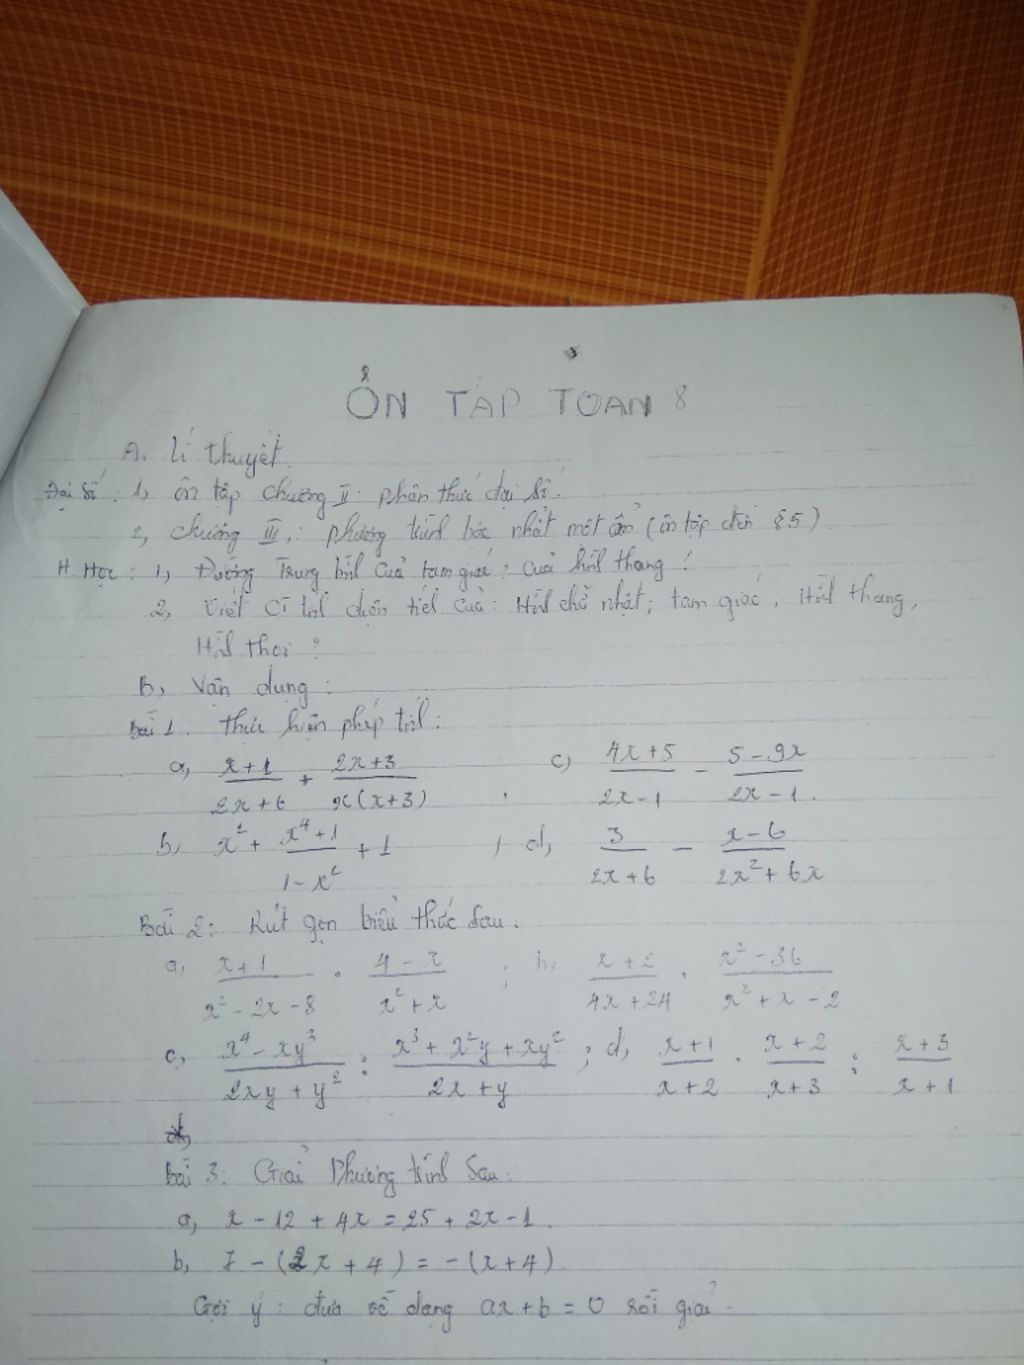 ÔN TẬP TOÁN 8
A. Lí thuyết.
Đại số: 1, ôn tập chương II: phân thức đại số.
2, chương III,: phương trình bậc nhất một ẩn (ôn tập đến §5).
H. Học: 1, Đường Trung bình của tam giác; của hình thang?
2, Viết CT tính diện tích của: Hình chữ nhật; tam giác, Hình thang,
Hình thoi?
B, Vận dụng:
Bài 1: Thực hiện phép tính:
a, (x+1)/(2x+6) + (2x+3)/(x(x+3)) c) (4x+5)/(2x-1) - (5-9x)/(2x-1).
b, x² + (x⁴+1)/(1-x²) + 1 ; d, 3/(2x+6) - (x-6)/(2x²+6x)
Bài 2: Rút gọn biểu thức sau:
a, (x+1)/(x²-2x-8) . (4-x)/(x²+x) ; b, (x+2)/(4x+24) . (x²-36)/(x²+x-2)
c, (x⁴-xy³)/(2xy+y²) : (x³+x²y+xy²)/(2x+y) ; d, (x+1)/(x+2) . (x+2)/(x+3) : (x+3)/(x+1)
Bài 3: Giải Phương trình Sau:
a, x - 12 + 4x = 25 + 2x - 1.
b, 7 - (2x + 4) = -(x + 4)
Gợi ý: đưa về dạng ax + b = 0 rồi giải.